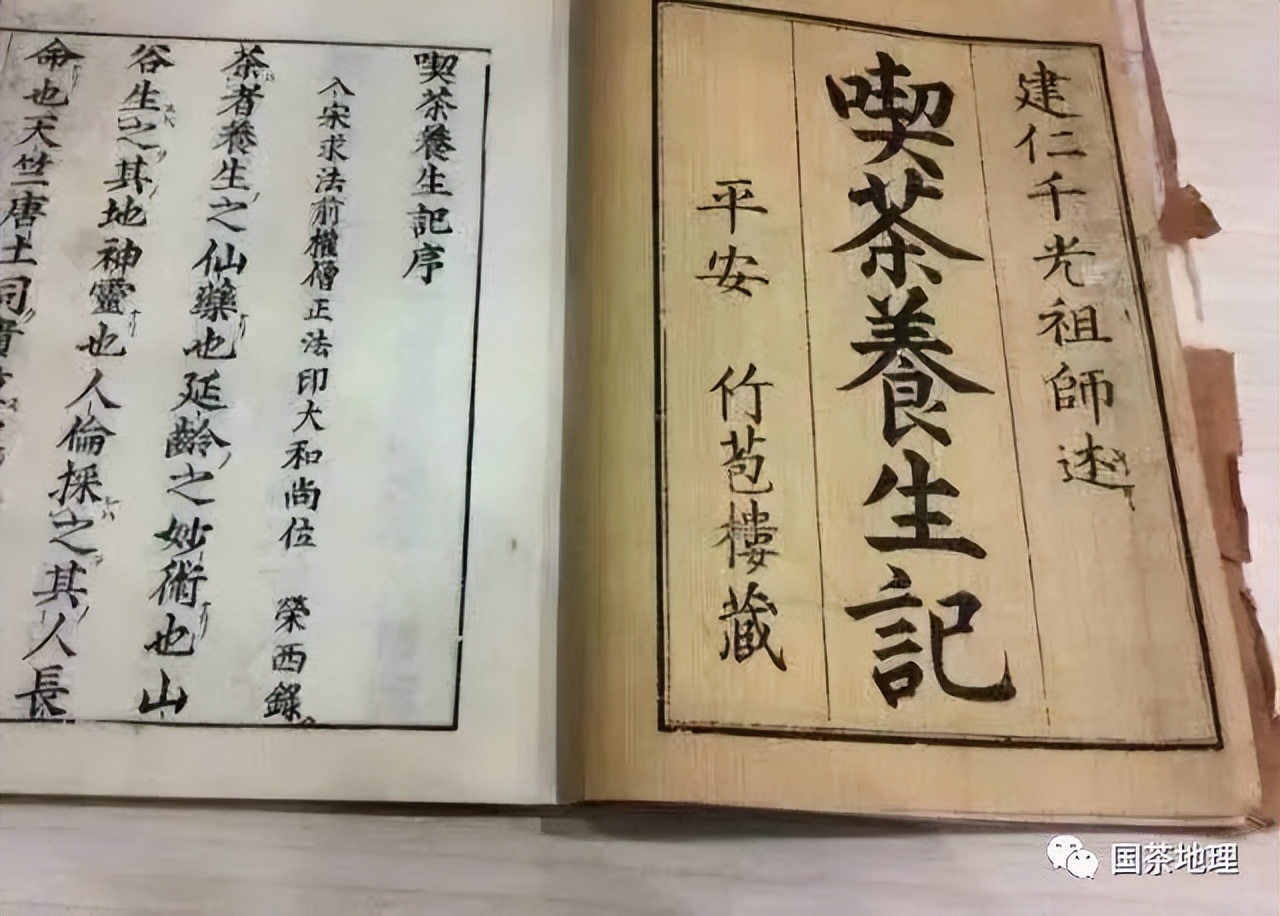 建仁千光祖師述
喫茶養生記
平安 竹苞樓藏
喫茶養生記序
入宋求法前權僧正法印大和尚位 榮西錄
茶者養生之仙藥也延齡之妙術也山
谷生之其地神靈也人倫採之其人長
命也天竺唐土同貴
国茶地理